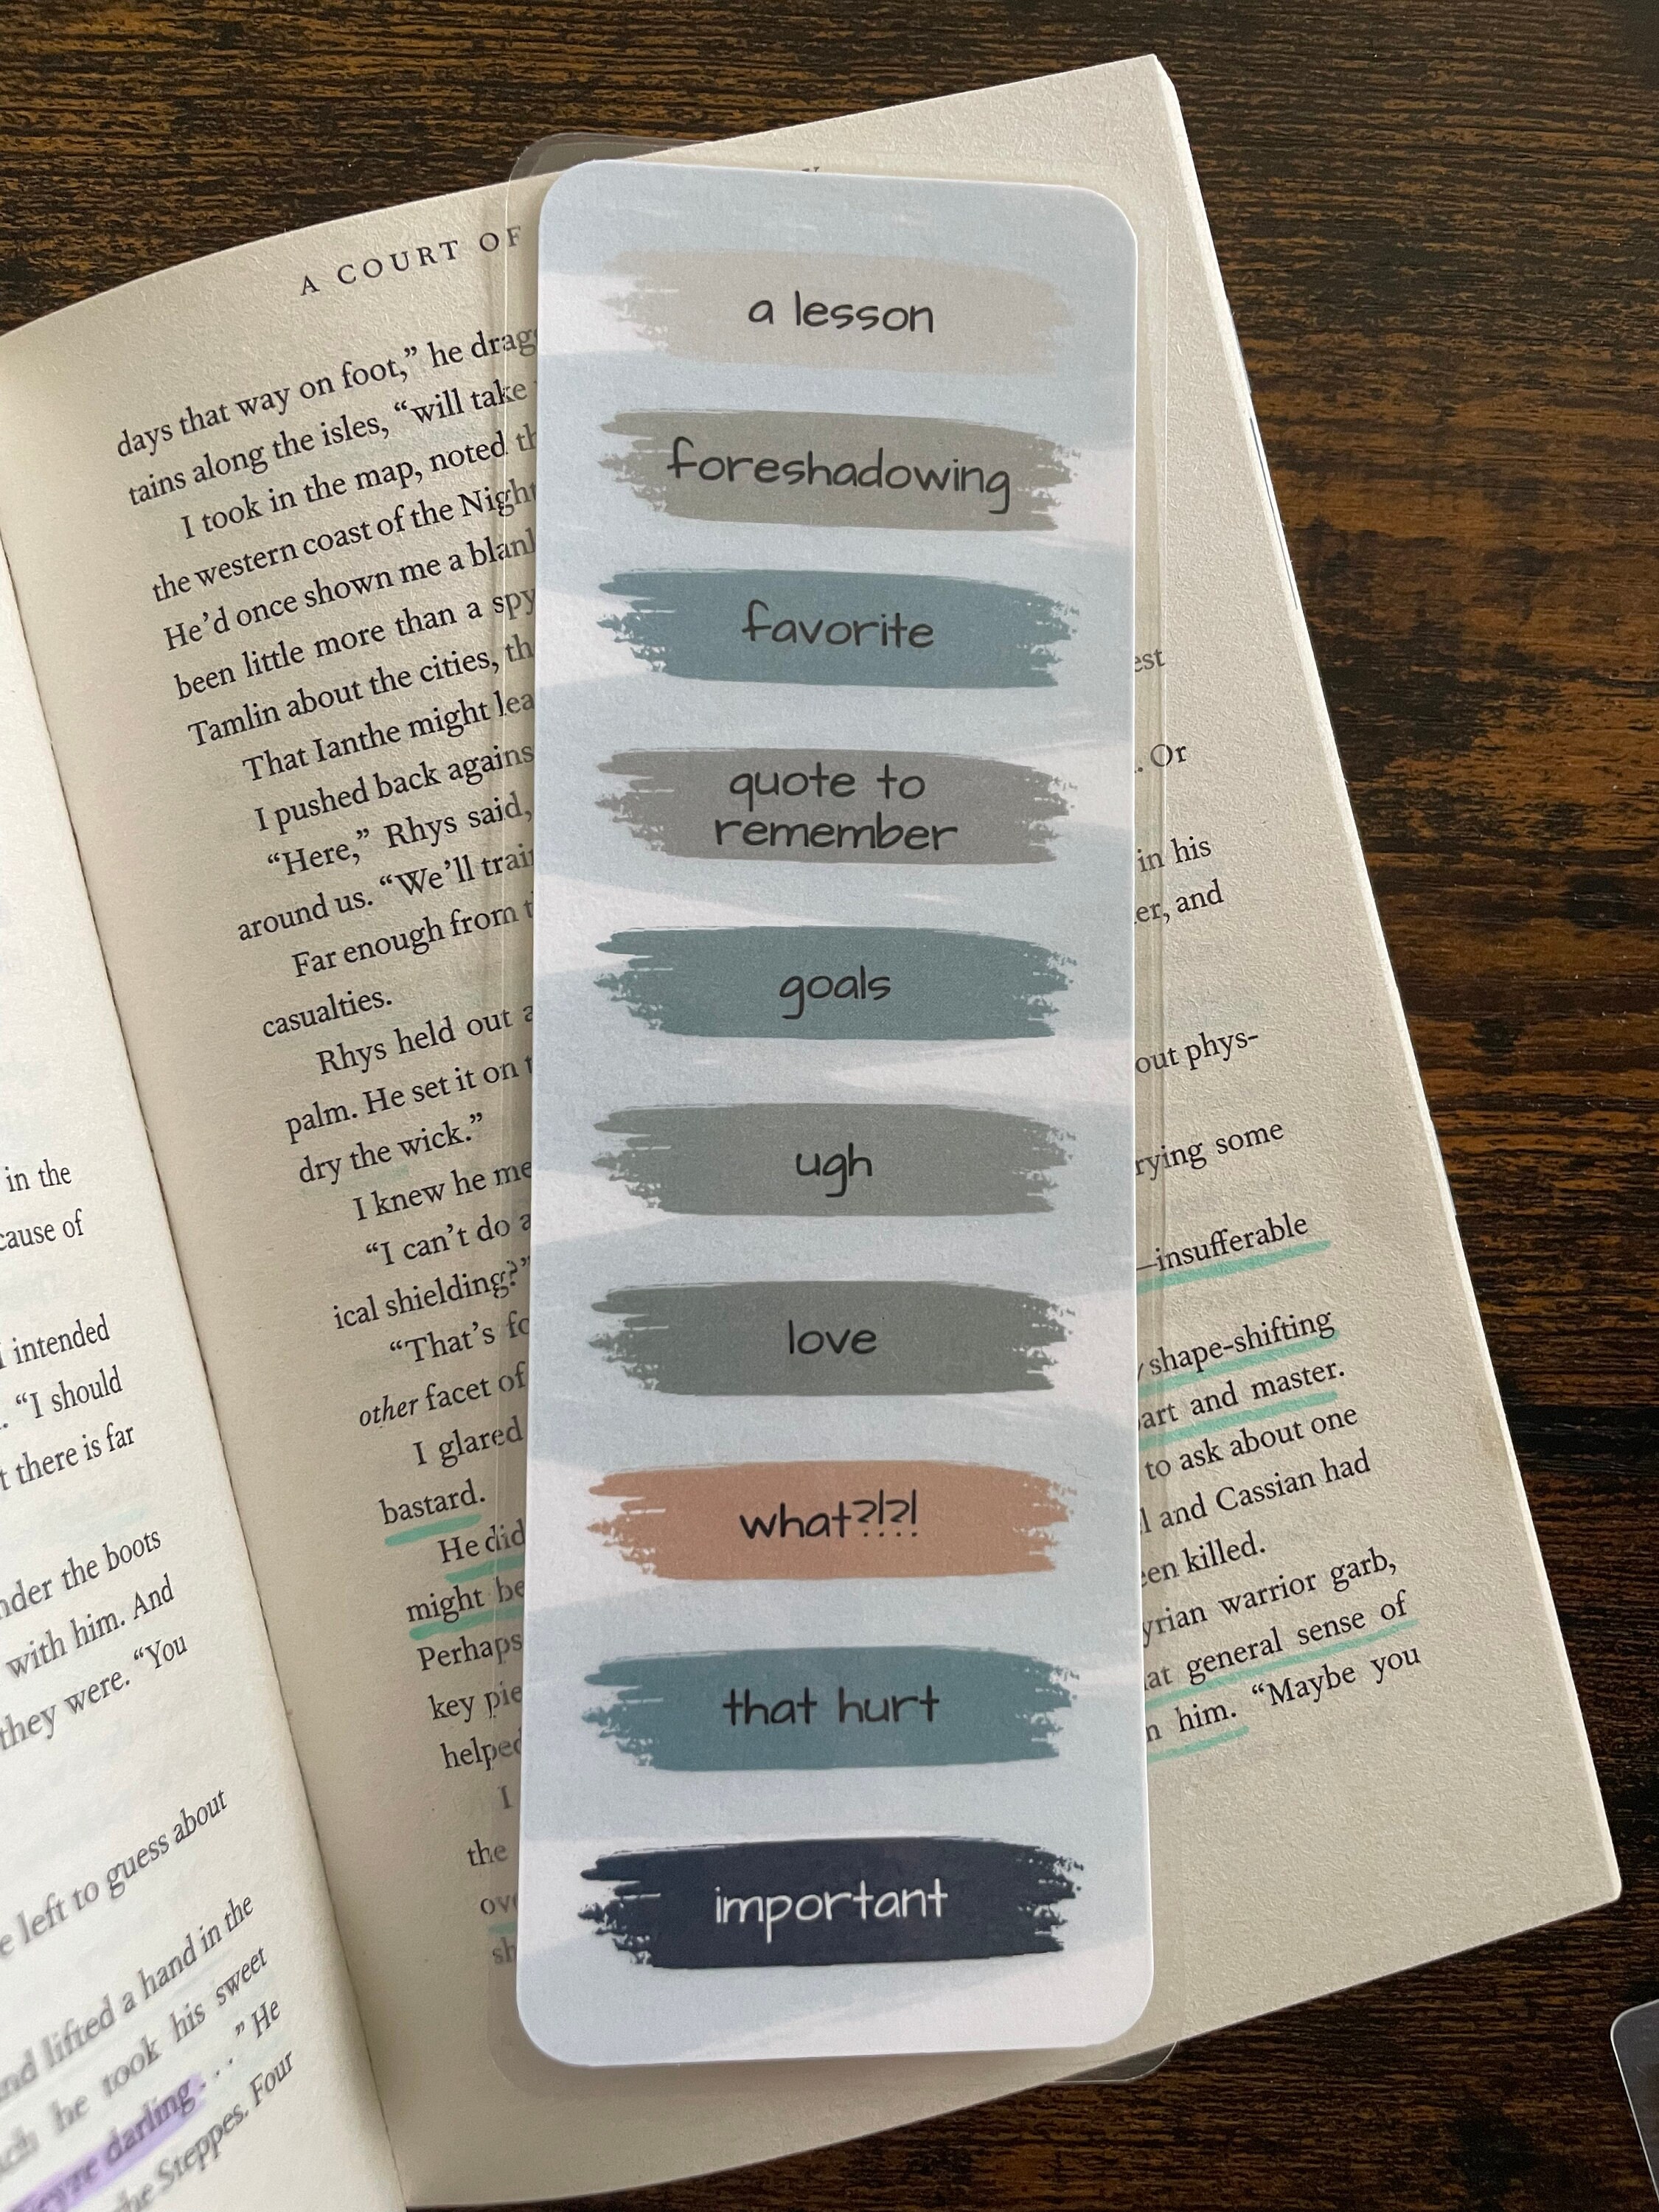 A COURT OF
days that way on foot,” he drag
tains along the isles, “will take
I took in the map, noted th
the western coast of the Night
He’d once shown me a blan
been little more than a spy
Tamlin about the cities, th
That Ianthe might lea
I pushed back agains
“Here,” Rhys said,
around us. “We’ll train
Far enough from t
casualties.
Rhys held out a
palm. He set it on t
dry the wick.”
I knew he me
“I can’t do a
ical shielding?”
“That’s fo
other facet of
I glared
bastard.
He did
might be
Perhaps
key pie
helped
I
the
ove
sh
a lesson
foreshadowing
favorite
quote to
remember
goals
ugh
love
what?!?!
that hurt
important
est
. Or
in his
er, and
out phys-
rying some
—insufferable
shape-shifting
art and master.
to ask about one
l and Cassian had
een killed.
yrian warrior garb,
at general sense of
n him. “Maybe you
in the
cause of
I intended
. “I should
t there is far
nder the boots
with him. And
they were. “You
e left to guess about
nd lifted a hand in the
ch he took his sweet
eyre darling . . .” He
the Steppes. Four